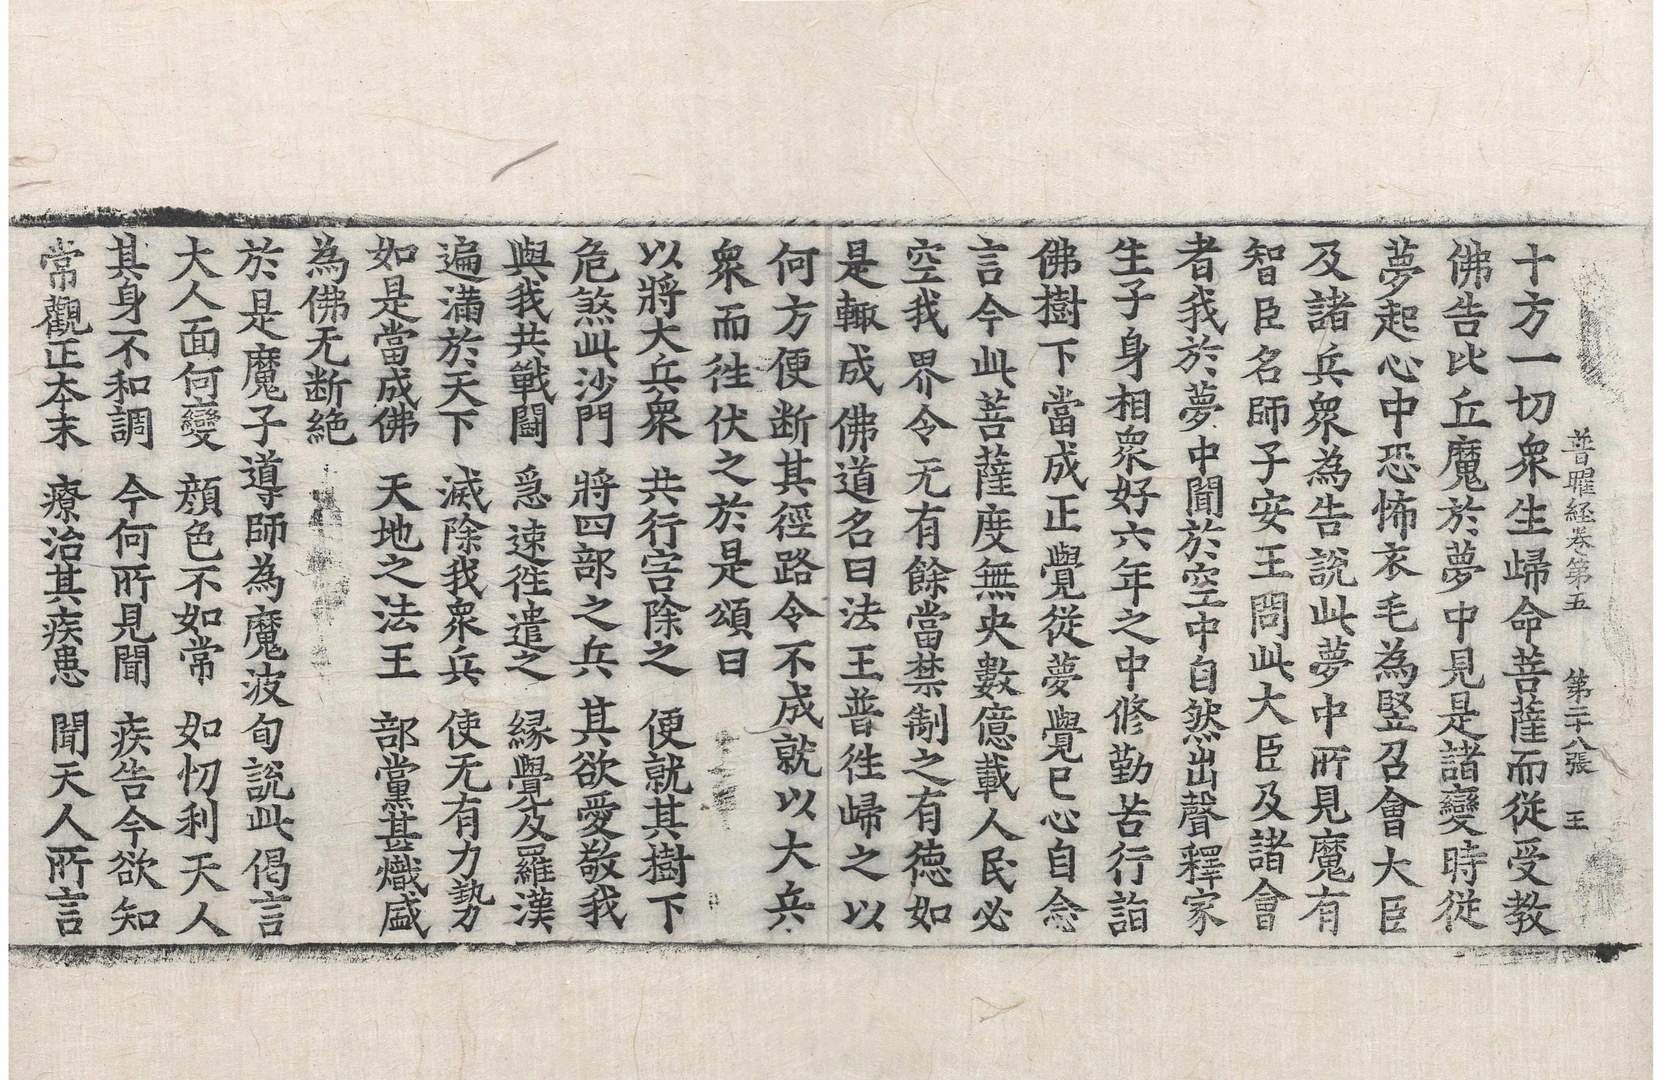 普曜経卷第五 第二十八張 王
十方一切衆生歸命菩薩而従受教
佛告比丘魔於夢中見是諸變時従
夢起心中恐怖衣毛為竪召會大臣
及諸兵衆為告說此夢中所見魔有
智臣名師子安王問此大臣及諸會
者我於夢中聞於空中自然出聲釋家
生子身相衆好六年之中修勤苦行詣
佛樹下當成正覺従夢覺已心自念
言今此菩薩度無央數億載人民必
空我界令无有餘當禁制之有徳如
是輙成佛道名曰法王普徃歸之以
何方便断其徑路令不成就以大兵
衆而徃伏之於是頌曰
以將大兵衆 共行害除之 便就其樹下
危煞此沙門 將四部之兵 其欲愛敬我
與我共戰鬪 急速徃遣之 縁覺及羅漢
遍滿於天下 滅除我衆兵 使无有力勢
如是當成佛 天地之法王 部黨甚熾盛
為佛无断絶
於是魔子導師為魔波旬說此偈言
大人面何變 顔色不如常 如忉利天人
其身不和調 今何所見聞 疾告今欲知
常觀正本末 療治其疾患 聞天人所言